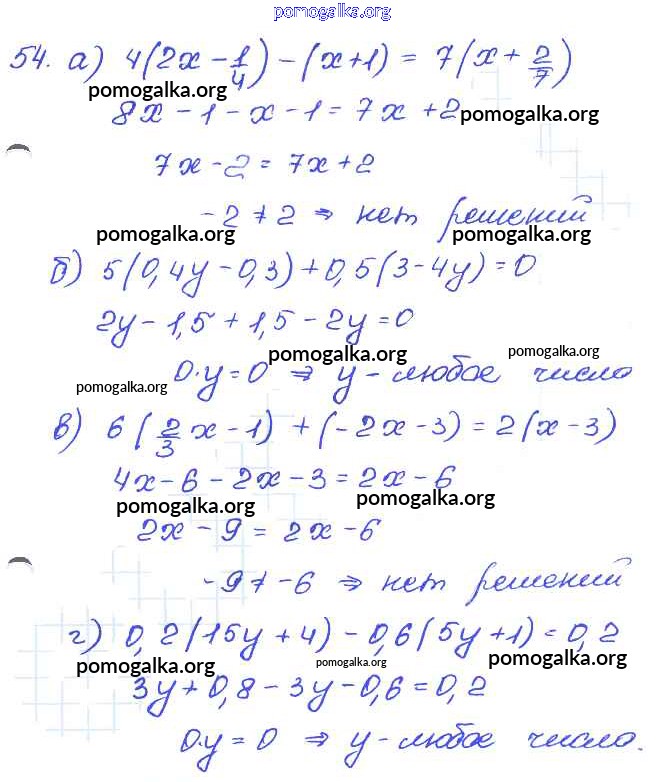 pomogalka.org
54. а) 4(2x - 1/4) - (x+1) = 7(x + 2/7)
pomogalka.org
8x - 1 - x - 1 = 7x + 2 pomogalka.org
7x - 2 = 7x + 2
-2 ≠ 2 ⇒ нет решений
pomogalka.org pomogalka.org
б) 5(0,4y - 0,3) + 0,5(3 - 4y) = 0
2y - 1,5 + 1,5 - 2y = 0
pomogalka.org pomogalka.org
0·y = 0 ⇒ y - любое число
pomogalka.org
в) 6(2/3 x - 1) + (-2x - 3) = 2(x - 3)
4x - 6 - 2x - 3 = 2x - 6
pomogalka.org pomogalka.org
2x - 9 = 2x - 6
-9 ≠ -6 ⇒ нет решений
г) 0,2(15y + 4) - 0,6(5y + 1) = 0,2
pomogalka.org pomogalka.org pomogalka.org
3y + 0,8 - 3y - 0,6 = 0,2
0·y = 0 ⇒ y - любое число.